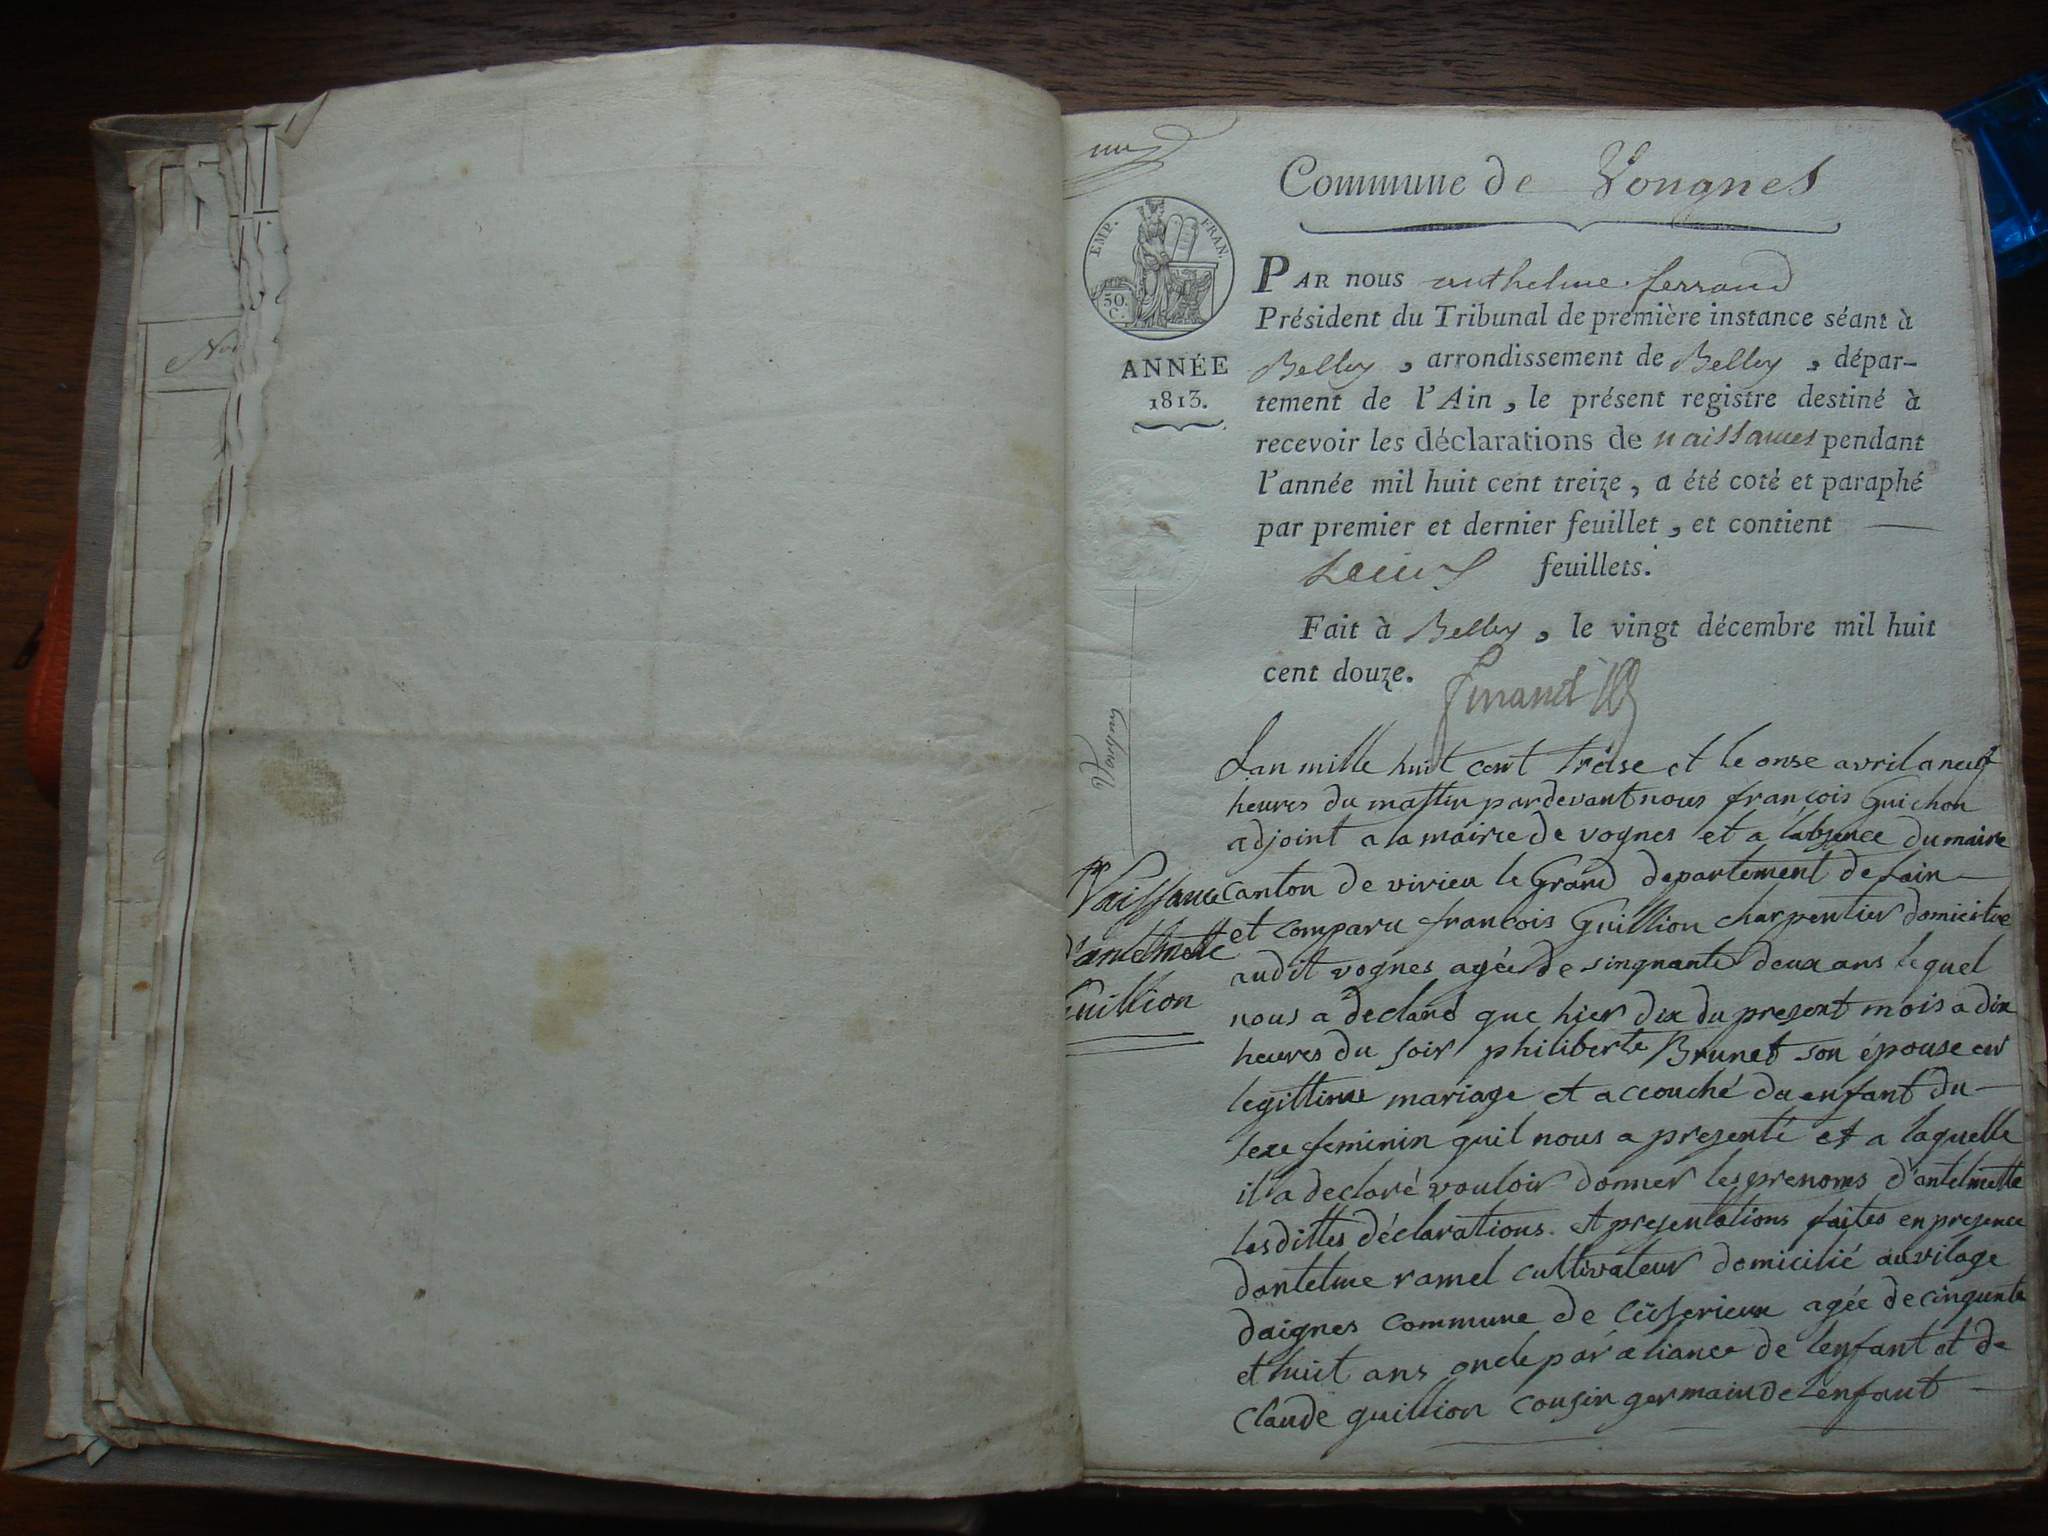 Commune de Vongnes
EMP. FRAN.
50.
C.
ANNÉE
1813.
PAR nous anthelme ferrand
Président du Tribunal de première instance séant à
Belley, arrondissement de Belley, dépar-
tement de l'Ain, le présent registre destiné à
recevoir les déclarations de naissances pendant
l'année mil huit cent treize, a été coté et paraphé
par premier et dernier feuillet, et contient
feuillets.
Fait à Belley, le vingt décembre mil huit
cent douze.
Naissance
d'antelmette
Guillion
Lan mille huit cent treise et le onse avril a neuf
heures du mattin pardevant nous françois Guichon
adjoint a la mairie de vognes et a labsence du maire
canton de virieu le Grand departement de lain
et comparu francois Guillion charpentier domicilie
audit vognes agée de sinquante deux ans lequel
nous a declaré que hier dix du present mois a dix
heures du soir philiberte Brunet son épouse en
legittime mariage et accouché du enfant du
sexe feminin quil nous a presenté et a laquelle
il a declaré vouloir donner les prenoms d'antelmette
les dittes déclarations et presentations faites en presence
dantelme ramel cultivateur domicilié au vilage
daignes commune de ceiserieux agée de cinquente
et huit ans oncle par aliance de lenfant et de
Claude guillion cousin germain de Lenfant